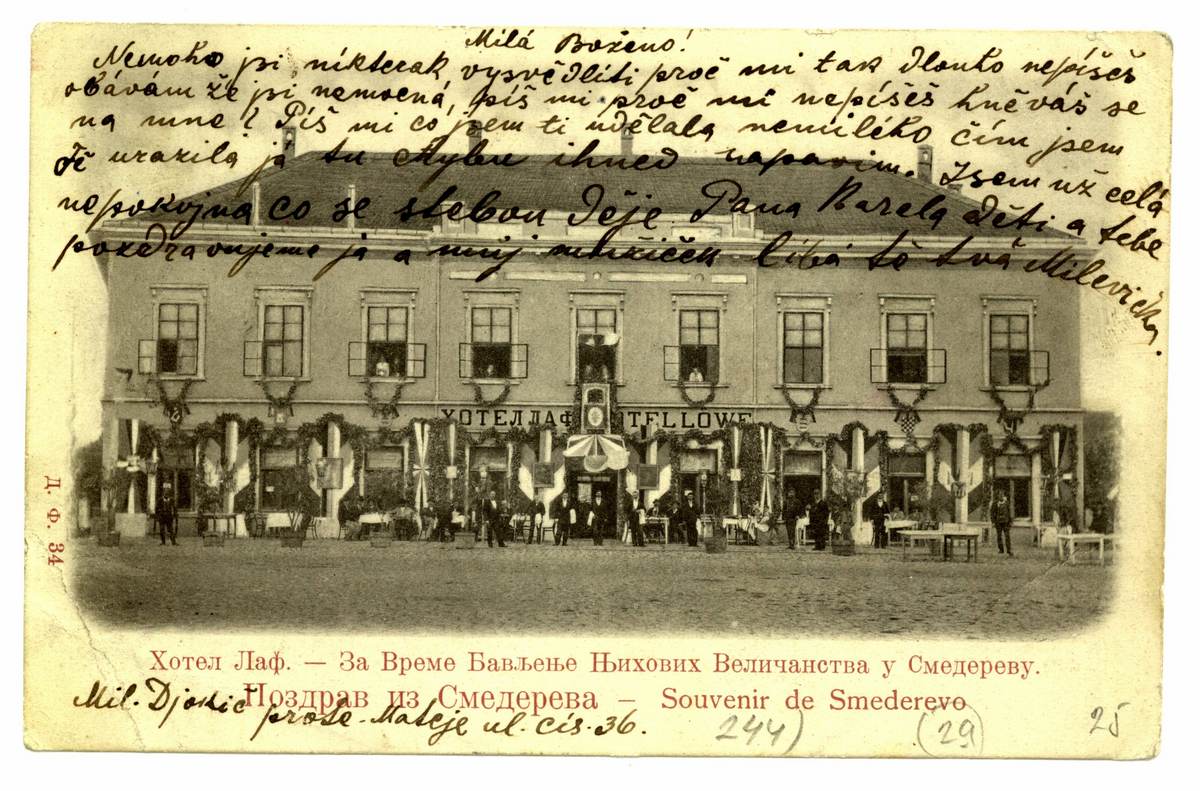 Milá Boženo!
Nemoho jsi nikterak vysvědliti proč mi tak dlouho nepíšeš
obávám že jsi nemocná, píš mi proč mi nepíšeš hněváš se
na mne? Piš mi co jsem ti udělala nemilého čím jsem
Tě urazila já tu chybu ihned napavim. Jsem už celá
nepokojna co se stebou děje Pana Karela děti a tebe
pozdravujeme ja a můj mužiček líbá tě tvá Milevička.
ХОТЕЛ ЛАФ HOTEL LÖWE
Д. Ф. 34
Хотел Лаф. — За Време Бављење Њихових Величанства у Смедереву.
Поздрав из Смедерева — Souvenir de Smederevo
Mil. Djokič prote-Mateje ul. čis. 36.
244) (29) 25